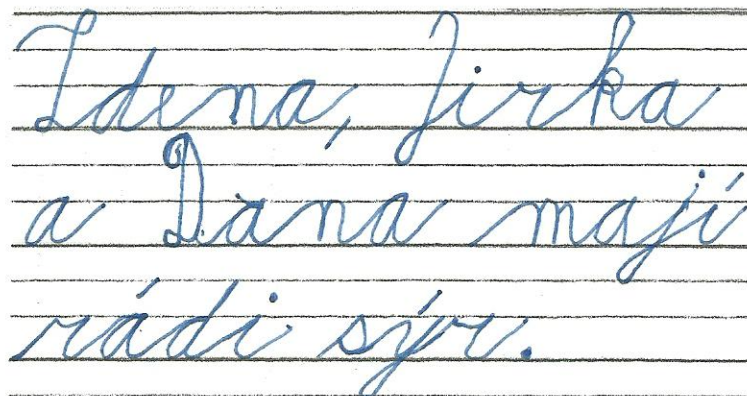 Zdena, Jirka
a Dana mají
rádi sýr.